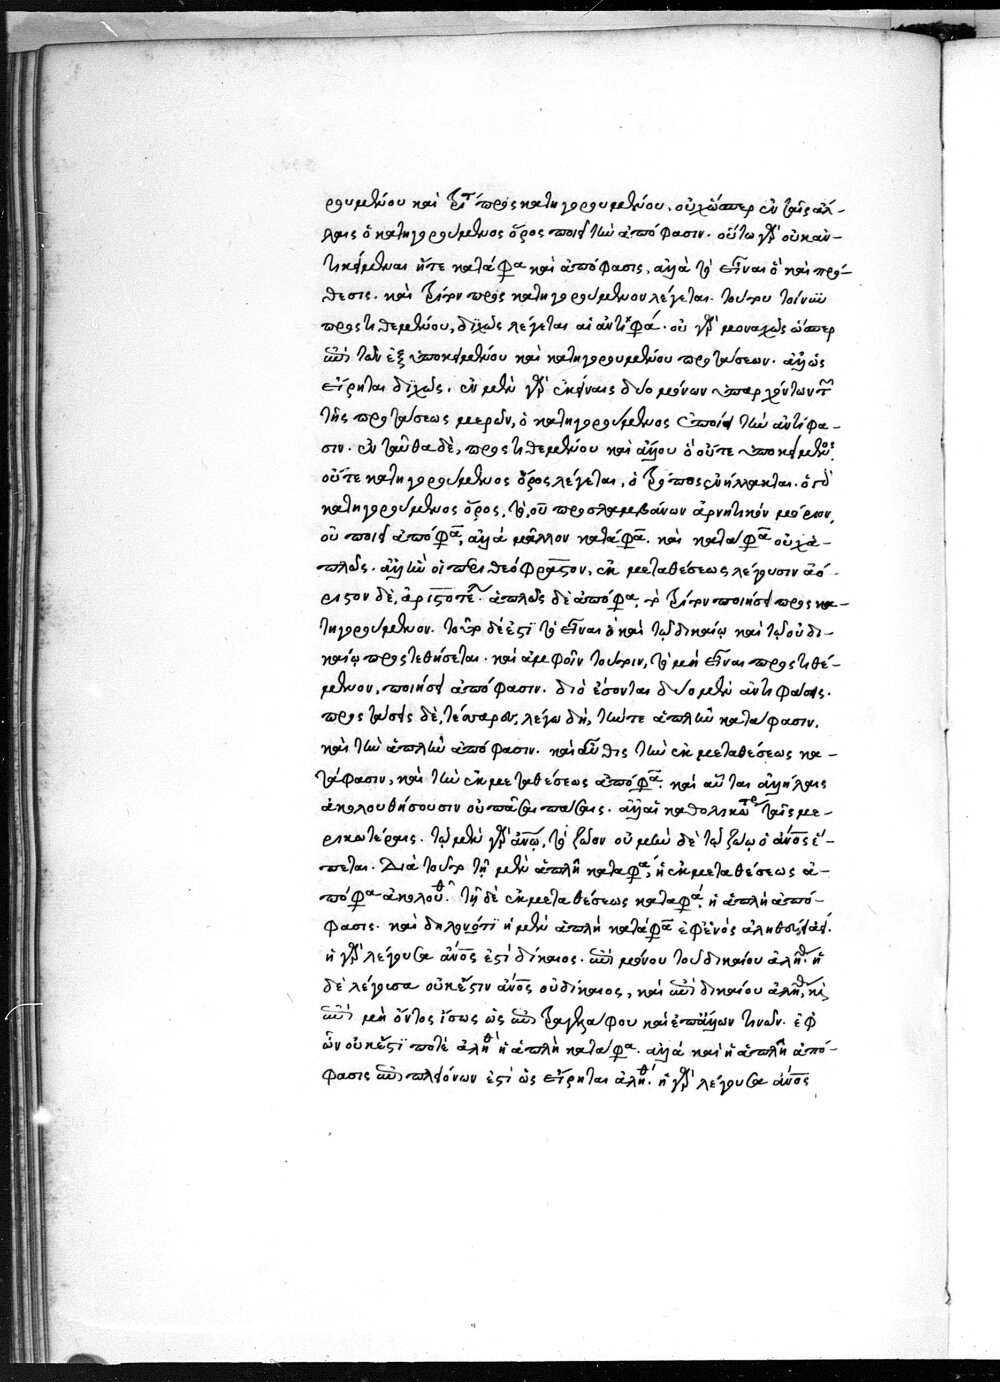 ρουμένου καὶ τρίτον προς κατηγορουμένου. οὐχ ὥσπερ ἐν ταῖς ἀλ-
λαις ὁ κατηγορούμενος ὅρος ποιεῖ τὴν ἀπόφασιν. οὕτω γὰρ οὐκ ἀν-
τικείμεναι ἥτε κατάφα καὶ ἀπόφασις, ἀλλὰ τὸ εἶναι ὃ καὶ πρό-
θεσις. καὶ τρίτον προς κατηγορούμενον λέγεται. τούτου τοίνυν
προστιθεμένου, διχῶς λέγεται αἱ ἀντιφά. οὐ γὰρ μοναχῶς ὥσπερ
ἐπὶ τῶν ἐξ ὑποκειμένου καὶ κατηγορουμένου προτάσεων. ἀλλ' ὡς
εἴρηται διχῶς. ἐν μὲν γὰρ ἐκείναις δύο μόνων ὑπαρχόντων τῶν
τῆς προτάσεως μερῶν, ὁ κατηγορούμενος ἐποίει τὴν ἀντίφα-
σιν. ἐνταῦθα δὲ, προστιθεμένου καὶ ἄλλου ὃ οὔτε ὑποκείμενος
οὔτε κατηγορούμενος ὅρος λέγεται, ὁ τρόπος ἐνήλλακται. ὁ γὰρ
κατηγορούμενος ὅρος, τὸ οὐ προσλαμβάνων ἀρνητικὸν μόριον,
οὐ ποιεῖ ἀπόφα, ἀλλὰ μᾶλλον κατάφα. καὶ κατάφα οὐχ ἁ-
πλῶς. ἀλλ' ἣν οἱ περὶ θεόφραστον, ἐκ μεταθέσεως λέγουσιν ἀό-
ριστον δὲ, ἀριστοτέ. ἁπλῶς δὲ ἀπόφα, τὸ τρίτον ποιήσει προς κα-
τηγορούμενον. τοῦτο δέ ἐστι τὸ εἶναι ὃ καὶ τῷ δικαίῳ καὶ τῷ οὐ δι-
καίῳ προστεθήσεται. καὶ ἀμφοῖν τούτοιν, τὸ μὴ εἶναι προστιθέ-
μενον, ποιήσει ἀπόφασιν. διὸ ἔσονται δύο μὲν ἀντιφάσεις.
προτάσεις δὲ, τέσσαρες. λέγω δὴ, τήν τε ἁπλῆν κατάφασιν.
καὶ τὴν ἁπλῆν ἀπόφασιν. καὶ αὖθις τὴν ἐκ μεταθέσεως κα-
τάφασιν, καὶ τὴν ἐκ μεταθέσεως ἀπόφα. καὶ αὗται ἀλλήλαις
ἀκολουθήσουσιν οὐ πᾶσαι πάσαις. ἀλλ' αἱ καθολικώτε ταῖς με-
ρικωτέραις. τῷ μὲν γὰρ ἀνῳ, τὸ ζῶον οὐ μὴν δὲ τῷ ζώῳ ὁ ἄνος ἕ-
πεται. Διὰ τοῦτο τῇ μὲν ἁπλῇ καταφά, ἡ ἐκ μεταθέσεως ἀ-
πόφα ἀκολουθ. τῇ δὲ ἐκ μεταθέσεως καταφά. ἡ ἁπλῆ ἀπό-
φασις. καὶ δηλονότι ἡ μὲν ἁπλῆ κατάφα ἐφ' ἑνὸς ἀληθεύσει.
ἡ γὰρ λέγουσα ἄνος ἐστὶ δίκαιος. ἐπὶ μόνου τοῦ δικαίου ἀληθ. ἡ
δὲ λέγουσα οὐκ ἔστιν ἄνος οὐ δίκαιος, καὶ ἐπὶ δικαίου ἀληθ, καὶ
ἐπὶ μὴ ὄντος ἴσως ὡς ἐπὶ τραγελάφου καὶ ἐπ' ἄλλων τινῶν. ἐφ
ὧν οὐκ ἔστι ποτὲ ἀληθ ἡ ἁπλῆ κατάφα. ἀλλὰ καὶ ἡ ἁπλῆ ἀπό-
φασις ἐπὶ πλειόνων ἐστὶ ὡς εἴρηται ἀληθ. ἡ γὰρ λέγουσα ἄνος